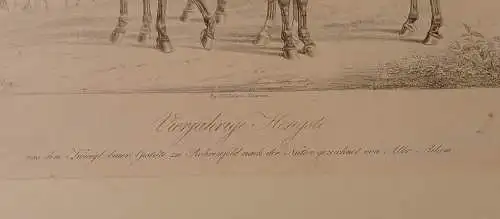 Vierjährige Hengste
aus dem Königl. baier. Gestüte zu Rohrenfeld nach der Natur gezeichnet von Albr. Adam